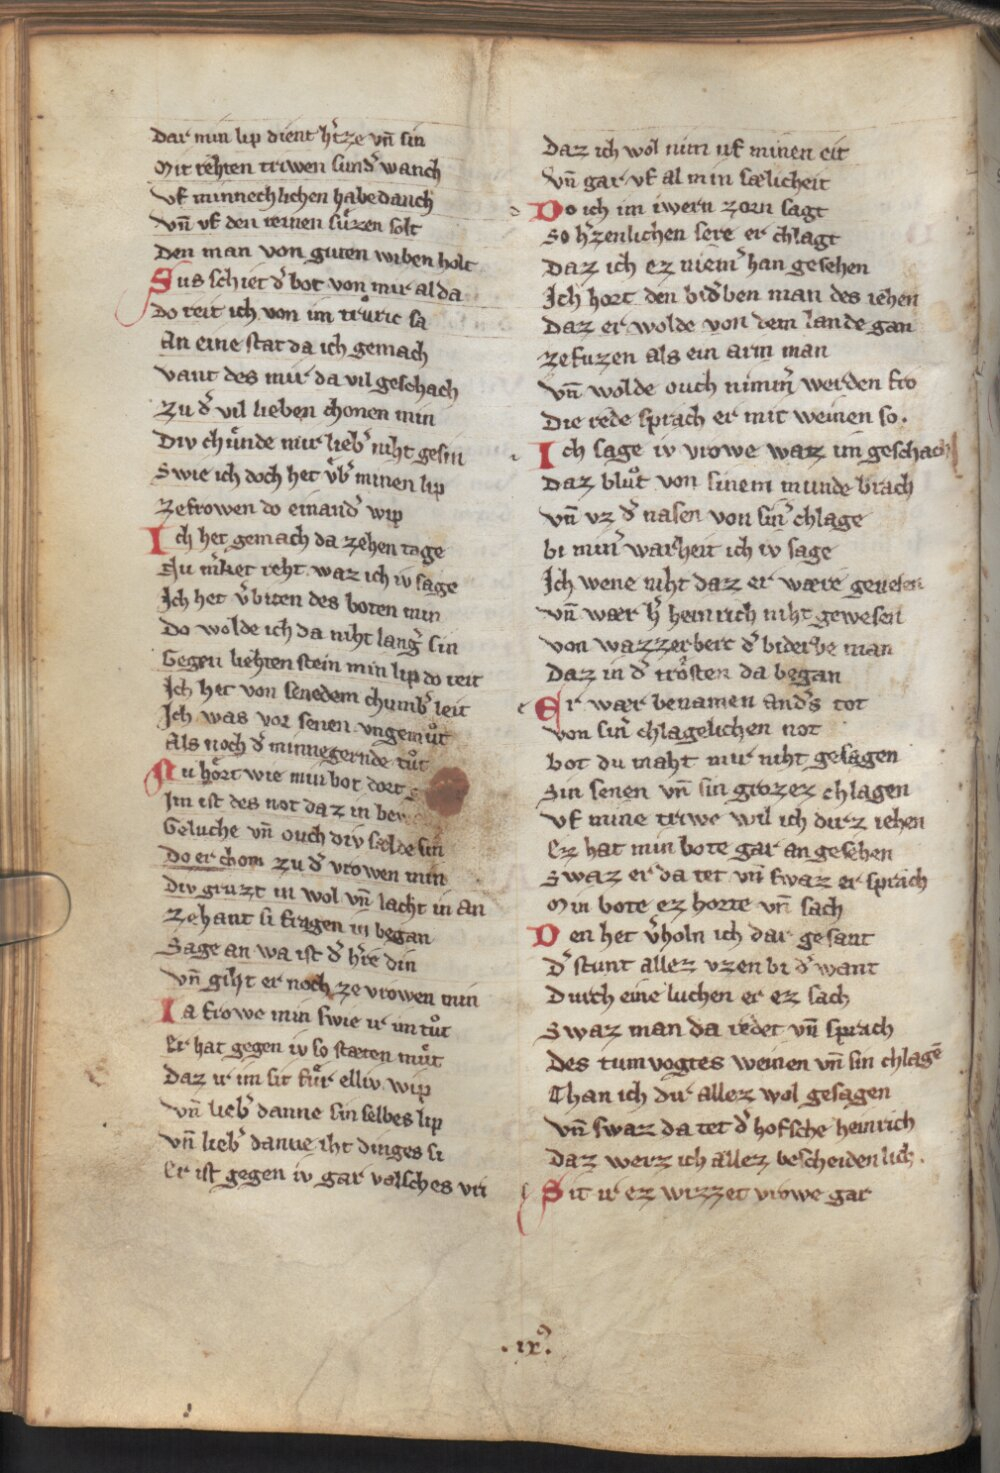 Dar min lip dient h̾tze vn̄ sin
Mit rehten triwen sund̾ wanch
Vf minnechlichen habedanch
Vn̄ vf den reinen sůzen solt
Den man von guten wiben holt
Sus schiet d̾ bot von mir al da
Do reit ich von im trůric sa
An eine stat da ich gemach
Vant des mir da vil geschach
Zu d̾ vil lieben chonen min
Div chůnde mir lieb̾ niht gesin
Swie ich doch het v̾b̾ minen lip
Ze frowen do einand̾ wip
Ich het gemach da zehen tage
Nu m̾ket reht waz ich iv sage
Ich het v̾biten des boten min
Do wolde ich da niht lang̾ sin
Gegen liehten stein min lip do reit
Ich het von senedem chumb̾ leit
Ich was vor senen vngemůt
Als noch d̾ minnegernde tůt
Nu hŏrt wie min bot dort
Im ist des not daz in bew
Geluche vn̄ ouch div sælde sin
Do er chom zu d̾ vrowen min
Div gruzt in wol vn̄ lacht in an
Zehant si fragen in began
Sage an wa ist d̾ h̾re din
Vn̄ giht er noch ze vrowen min
Ia frowe min swie ir im tůt
Er hat gegen iv so stæten můt
Daz ir im sit fůr elliv wip
Vn̄ lieb̾ danne sin selbes lip
Vn̄ lieb̾ danne iht dinges si
Er ist gegen iv gar valsches vri
Daz ich wol nim vf minen eit
Vn̄ gar vf al min sælicheit
Do ich im iwern zorn sagt
So h̾zenlichen sere er chlagt
Daz ich ez niem̾ han gesehen
Ich hort den bid̾ben man des iehen
Daz er wolde von dem lande gan
Ze fuzen als ein arm man
Vn̄ wolde ouch nimm̾ werden fro
Die rede sprach er mit weinen so.
Ich sage iv vrowe waz im geschach
Daz blůt von sinem munde brach
Vn̄ vz d̾ nasen von sin̾ chlage
bi min̾ warheit ich iv sage
Ich wene niht daz er wære genesen
Vn̄ wær h̾ heinrich niht gewesen
Von wazzerberc d̾ biderbe man
Daz in d̾ trŏsten da began
Er wær benamen and̾s tot
Von sin̾ chlagelichen not
bot du maht mir niht gesagen
Sin senen vn̄ sin grozez chlagen
Vf mine triwe wil ich dirz iehen
Ez hat min bote gar an gesehen
Swaz er da tet vn̄ swaz er sprach
Min bote ez horte vn̄ sach
Den het v̾holn ich dar gesant
D̾ stunt allez vzen bi d̾ want
Durch eine luchen er ez sach
Swaz man da redet vn̄ sprach
Des tumvogtes weinen vn̄ sin chlagē
Chan ich dir allez wol gesagen
Vn̄ swaz da tet d̾ hofsche heinrich
Daz werz ich allez bescheidenlich.
Sit ir ez wizzet vrowe gar
.ix⁹.